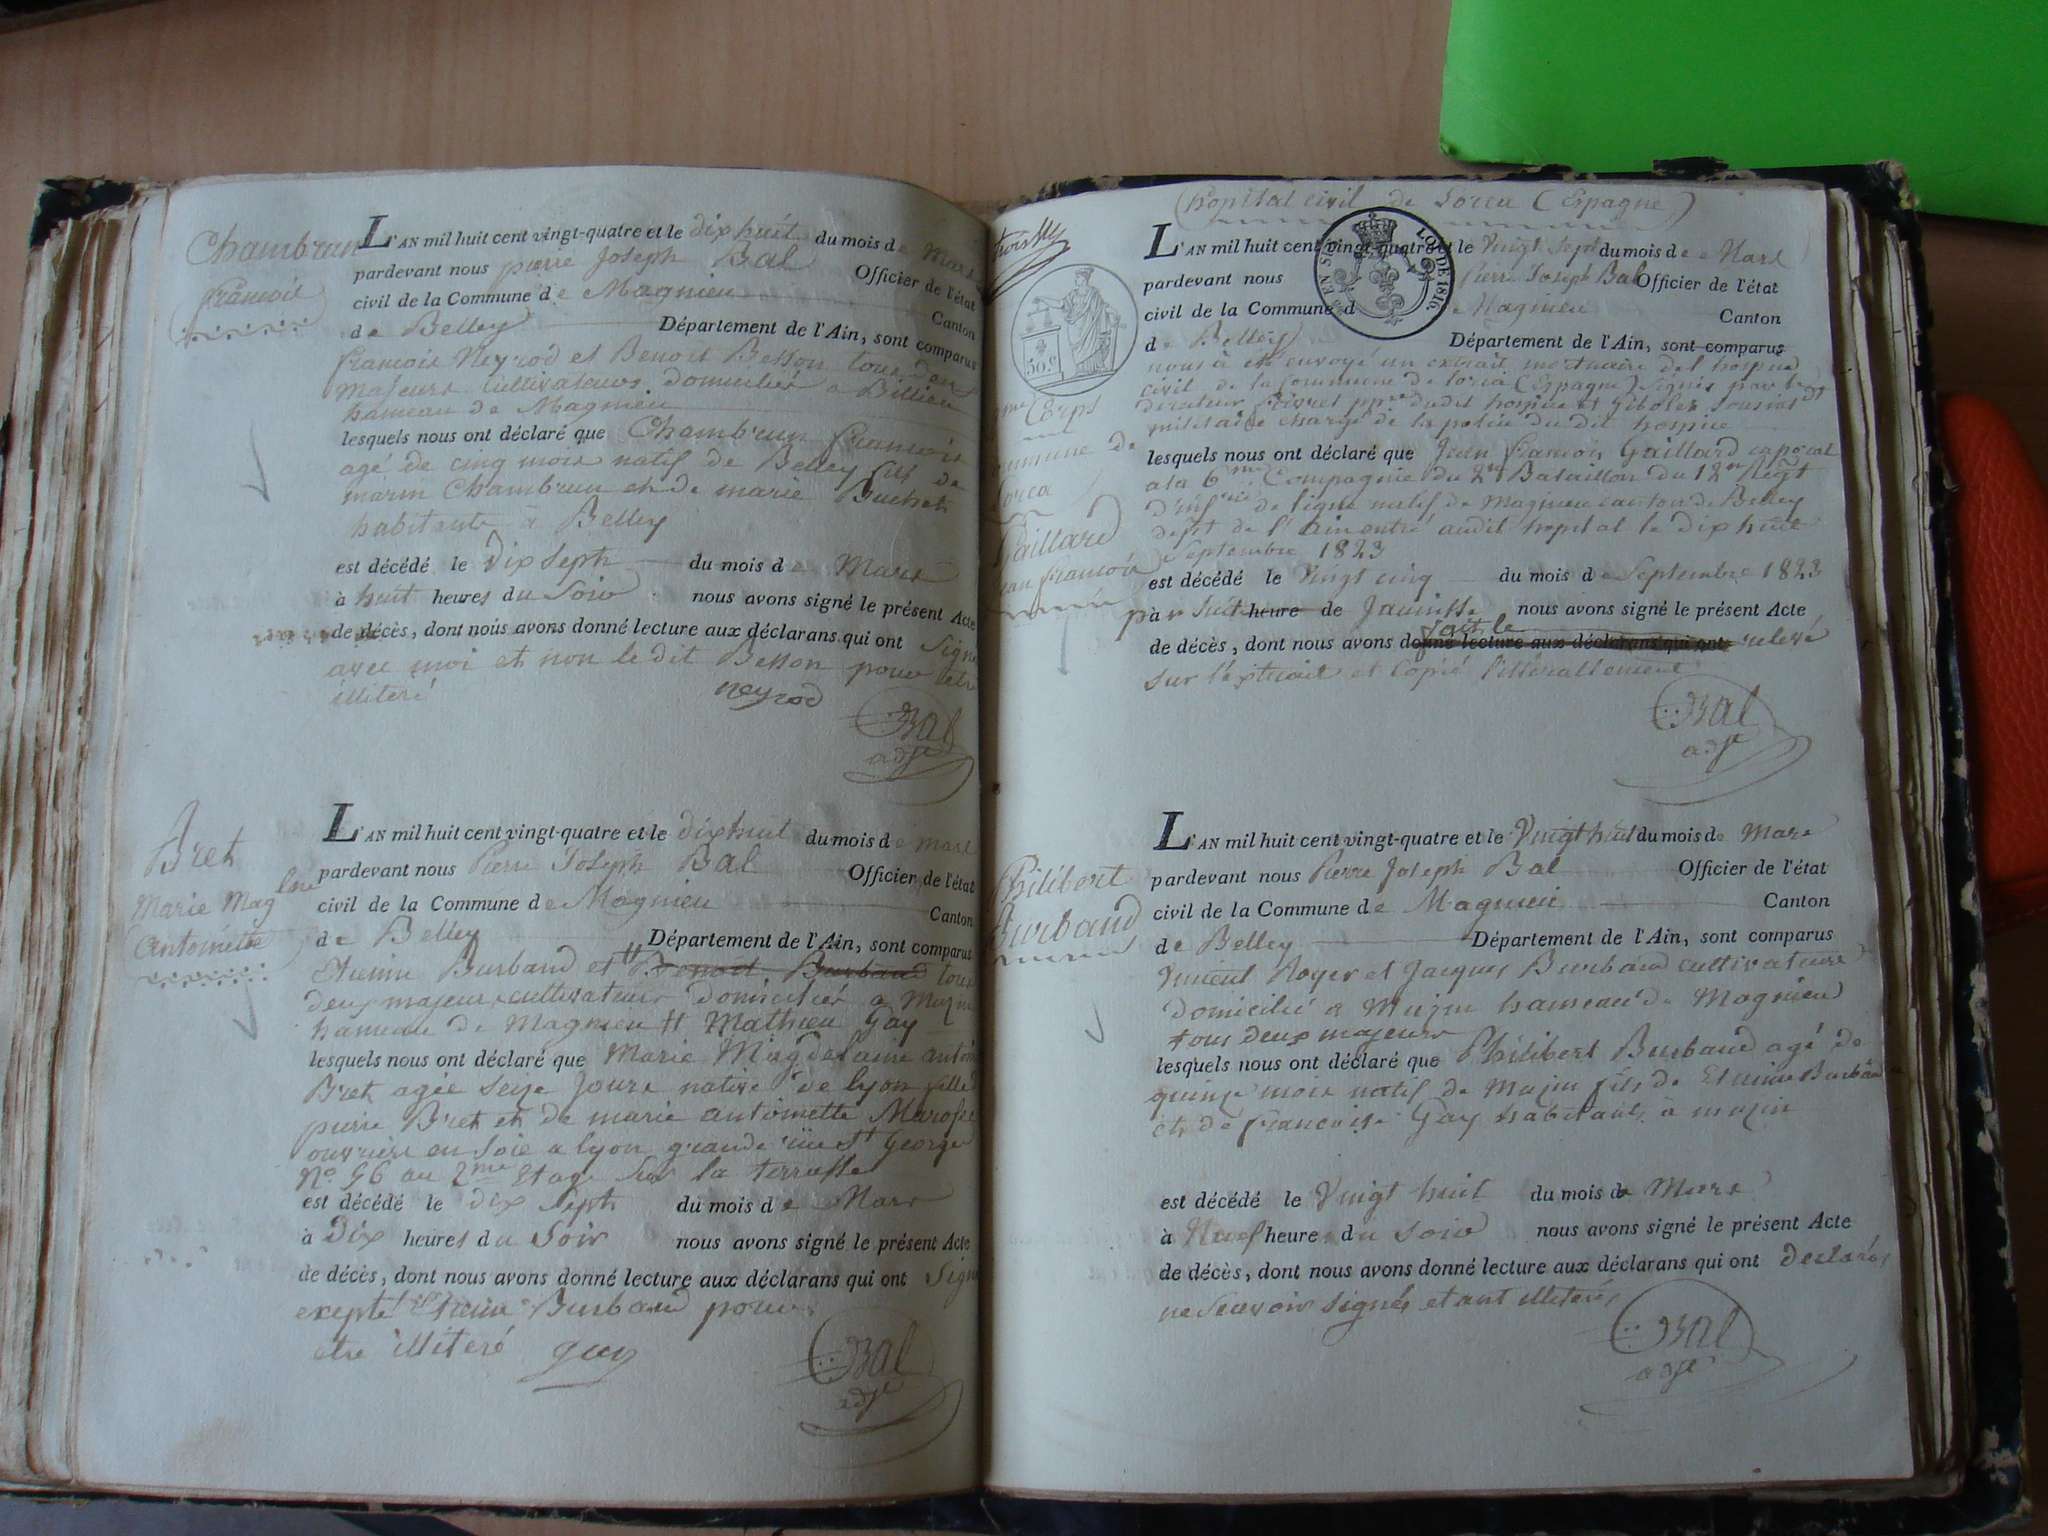 Chambrun
françois
L'AN mil huit cent vingt-quatre et le dix huit du mois de Mars
pardevant nous pierre Joseph Bal Officier de l'état
civil de la Commune de Magnieu Canton
de Belley Département de l'Ain, sont comparus
francois Neyrod et Benoit Besson tous deux
majeurs cultivateurs domicilié a Billieu
hameau de Magnieu
lesquels nous ont déclaré que Chambrun francois
agé de cinq mois natif de Belley fils de
marin Chambrun et de marie Buchet
habitants à Belley
est décédé le Dix Septs du mois de Mars
à huit heures du Soir nous avons signé le présent Acte
de décès, dont nous avons donné lecture aux déclarans qui ont Signé
avec moi et non le dit Besson pour etre
illiteré neyrod
Bal
adjt
Bret
Marie Maglne
Antoinette
L'AN mil huit cent vingt-quatre et le dix huit du mois de mars
pardevant nous Pierre Joseph Bal Officier de l'état
civil de la Commune de Magnieu Canton
de Belley Département de l'Ain, sont comparus
Etienne Burbaud et # Benoit Burbaud tous
deux majeurs cultivateurs domiciliés a Muzin
hameau de Magnieu # Mathieu Gay
lesquels nous ont déclaré que Marie Magdelaine antoin
Bret agée seize jours native de lyon fille
pierre Bret et de marie antoinette
ouvrière en Soie a lyon grande rüe St George
No 56 au 2me Etage Sur la terrasse
est décédé le dix septs du mois de Mars
à Dix heures du Soir nous avons signé le présent Acte
de décès, dont nous avons donné lecture aux déclarans qui ont Signé
exepté Etienne Burbaud pour
etre illiteré gay
Bal
adjt
(hopital civil de Lorca (Espagne)
L'AN mil huit cent vingt-quatre et le Vingt sept du mois de Mars
pardevant nous Pierre Joseph Bal Officier de l'état
civil de la Commune de Magnieu Canton
de Belley Département de l'Ain, sont comparus
LOI DE 1816
50 c
nous à été envoyé un extrait mortuaire de l hospice
civil de la commune de lorca (Espagne) signés par le
directeur dudit hospice et
militaire chargé de la police du dit hospice
me Corps
commune de
Lorca
Gaillard
Jean françois
lesquels nous ont déclaré que Jean françois Gaillard caporal
a la 6me Compagnie du 2me Bataillon du 12me Regt
d'infrie de ligne natif de Magnieu canton de Belley
dept de l'Ain entré audit hopital le dix huit
Septembre 1823
est décédé le Vingt cinq du mois de Septembre 1823
par suite heure de Jaunisse nous avons signé le présent Acte
fait le
de décès, dont nous avons donné lecture aux déclarans qui ont relevé
sur l'extrait et Copié littérallement
Bal
adjt
Philibert
Burbaud
L'AN mil huit cent vingt-quatre et le Vingt huit du mois de Mars
pardevant nous Pierre Joseph Bal Officier de l'état
civil de la Commune de Magnieu Canton
de Belley Département de l'Ain, sont comparus
Vincent Royer et Jacques Burbaud cultivateurs
domicilié a Muzin hameau de Magnieu
tous deux majeurs
lesquels nous ont déclaré que Philibert Burbaud agé de
quinze mois natif de Muzin fils de Etienne Burbaud
et de francoise Gay habitants à muzin
est décédé le Vingt huit du mois de Mars
à Neuf heures du Soir nous avons signé le présent Acte
de décès, dont nous avons donné lecture aux déclarans qui ont déclarés
ne scavoir signés etant illiterés
Bal
adjt